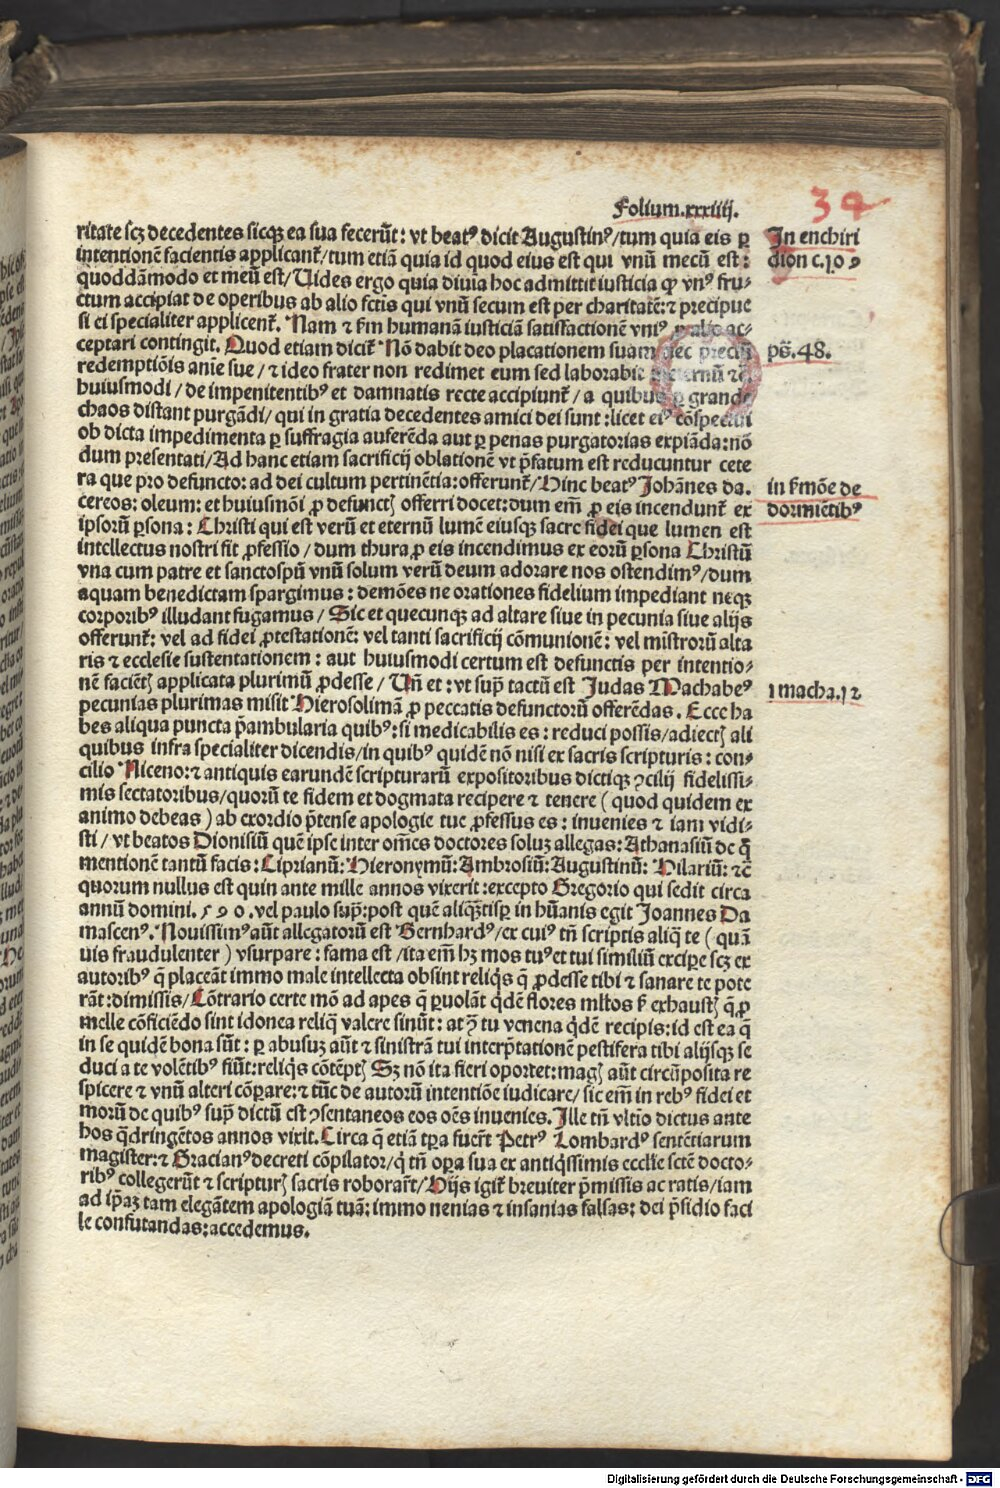 Folium.xxxiiij.
34
ritate scz decedentes sicqꝫ ea sua fecerūt: vt beatꝰ dicit Augustinꝰ/tum quia eis ꝑ
intentionē facientis applicant̄/tum etiā quia id quod eius est qui vnū mecū est:
quoddāmodo et meū est/Vides ergo quia diuia hoc admittit iusticia ꝙ vnꝰ fru⸗
ctum accipiat de operibus ab alio fctis qui vnū secum est per charitatē: ⁊ precipue
si ei specialiter applicent̄. Nam ⁊ ẜm humanā iusticiā satisfactionē vniꝰ ꝓ alio ac⸗
ceptari contingit. Quod etiam dicit̄ Nō dabit deo placationem suam nec preciū
redemptiōis anie sue/⁊ ideo frater non redimet eum sed laborabit ineternū ⁊c̄.
huiusmodi/de impenitentibꝰ et damnatis recte accipiunt̄/a quibus ꝑ grande
chaos distant purgādi/qui in gratia decedentes amici dei sunt: licet eiꝰ cōspectui
ob dicta impedimenta ꝑ suffragia auferēda aut ꝑ penas purgatorias expiāda: nō
dum presentati/Ad hanc etiam sacrificij oblationē vt p̄fatum est reducuntur cete
ra que pro defuncto: ad dei cultum pertinētia: offerunt̄/Hinc beatꝰ Johānes da.
cereos: oleum: et huiusmōi ꝓ defunctꝭ offerri docet: dum em̄ ꝓ eis incendunt̄ ex
ipsorū ꝑsona: Christi qui est verū et eternū lumē eiusqꝫ sacre fidei que lumen est
intellectus nostri fit ꝓfessio/dum thura ꝓ eis incendimus ex eorū ꝑsona Christū
vna cum patre et sanctospū vnū solum verū deum adorare nos ostendimꝰ/dum
aquam benedictam spargimus: demōes ne orationes fidelium impediant neqꝫ
corporibꝰ illudant fugamus/Sic et quecunqꝫ ad altare siue in pecunia siue alijs
offerunt̄: vel ad fidei ꝓtestationē: vel tanti sacrificij cōmunionē: vel mīstrorū alta
ris ⁊ ecclesie sustentationem: aut huiusmodi certum est defunctis per intentio⸗
nē faciētꝭ applicata plurimū ꝓdesse/Vn̄ et: vt sup̄ tactū est Judas Machabeꝰ
pecunias plurimas misit Hierosolimā ꝓ peccatis defunctorū offerēdas. Ecce ha
bes aliqua puncta p̄ambularia quibꝰ: si medicabilis es: reduci possis/adiectꝭ ali
quibus infra specialiter dicendis/in quibꝰ quidē nō nisi ex sacris scripturis: con⸗
cilio Niceno: ⁊ antiquis earundē scripturarū expositoribus dictiqꝫ ꝯcilij fidelissi⸗
mis sectatoribus/quorū te fidem et dogmata recipere ⁊ tenere (quod quidem ex
animo debeas) ab exordio p̄tense apologie tue ꝓfessus es: inuenies ⁊ iam vidi⸗
sti/vt beatos Dionisiū quē ipse inter om̄es doctores soluꝫ allegas: Athanasiū de q̄
mentionē tantū facis: Ciprianū: Hieronymū: Ambrosiū: Augustinū: Hilariū: ⁊c̄
quorum nullus est quin ante mille annos vixerit: excepto Gregorio qui sedit circa
annū domini. 590. vel paulo sup̄: post quē aliq̄tisꝑ in hūanis egit Joannes Da
mascenꝰ. Nouissimꝰ aūt allegatorū est Bernhardꝰ/ex cuiꝰ tn̄ scriptis aliq̄ te (quā
uis fraudulenter) vsurpare: fama est/ita em̄ hꝫ mos tuꝰ et tui similiū excipe scꝫ ex
autoribꝰ q̄ placeāt immo male intellecta obsint reliq̄s q̄ ꝓdesse tibi ⁊ sanare te pote
rāt: dimissis/Cōtrario certe mō ad apes q̄ ꝑuolāt q̄dē flores ml̄tos ẜ exhaustꝭ q̄ ꝓ
melle cōficiēdo sint idonea reliq̄ valere sinūt: at ꝙ tu venena q̄dē recipis: id est ea q̄
in se quidē bona sūt: ꝑ abusuꝫ aūt ⁊ sinistrā tui interp̄tationē pestifera tibi alijsqꝫ se
duci a te volētibꝰ fiūt: reliq̄s cōtēptꝭ Sꝫ nō ita fieri oportet: magꝭ aūt circūposita re
spicere ⁊ vnū alteri cōꝑare: ⁊ tūc de autorū intentiōe iudicare/sic em̄ in rebꝰ fidei et
morū de quibꝰ sup̄ dictū est ꝯsentaneos eos oēs inuenies. Ille tn̄ vltīo dictus ante
hos q̄dringētos annos vixit. Circa q̄ etiā tꝑa fuer̄t Petrꝰ Lombardꝰ sentētiarum
magister: ⁊ Gracianꝰ decreti cōpilator/q̄ tn̄ oꝑa sua ex antiq̄ssimis eccl̄ie sctē docto⸗
ribꝰ collegerūt ⁊ scripturꝭ sacris roborar̄t/Hijs igit̄ breuiter p̄missis ac ratis/iam
ad ip̄aꝫ tam elegātem apologiā tuā: immo nenias ⁊ insanias falsas: dei p̄sidio faci
le confutandas: accedemus.
In enchiri
dion c.109
ps̄.48.
in ẜmōe de
dormiētibꝰ
1 macha.12
Digitalisierung gefördert durch die Deutsche Forschungsgemeinschaft - DFG